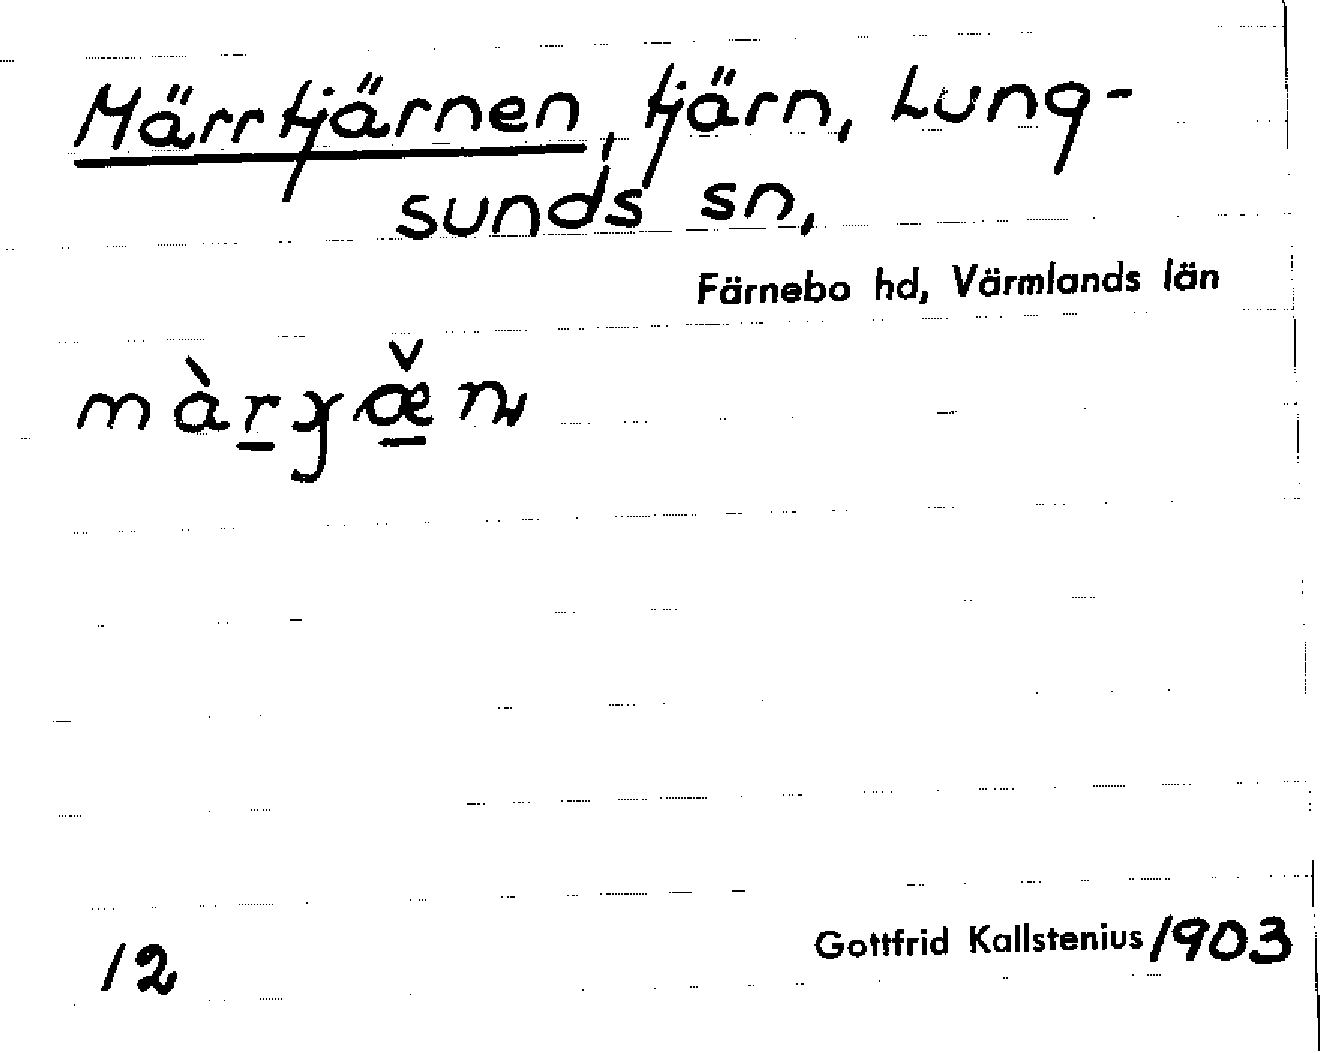 Märrtjärnen, tjärn, Lung-
sunds sn,
Färnebo hd, Värmlands län
12
Gottfrid Kallstenius 1903